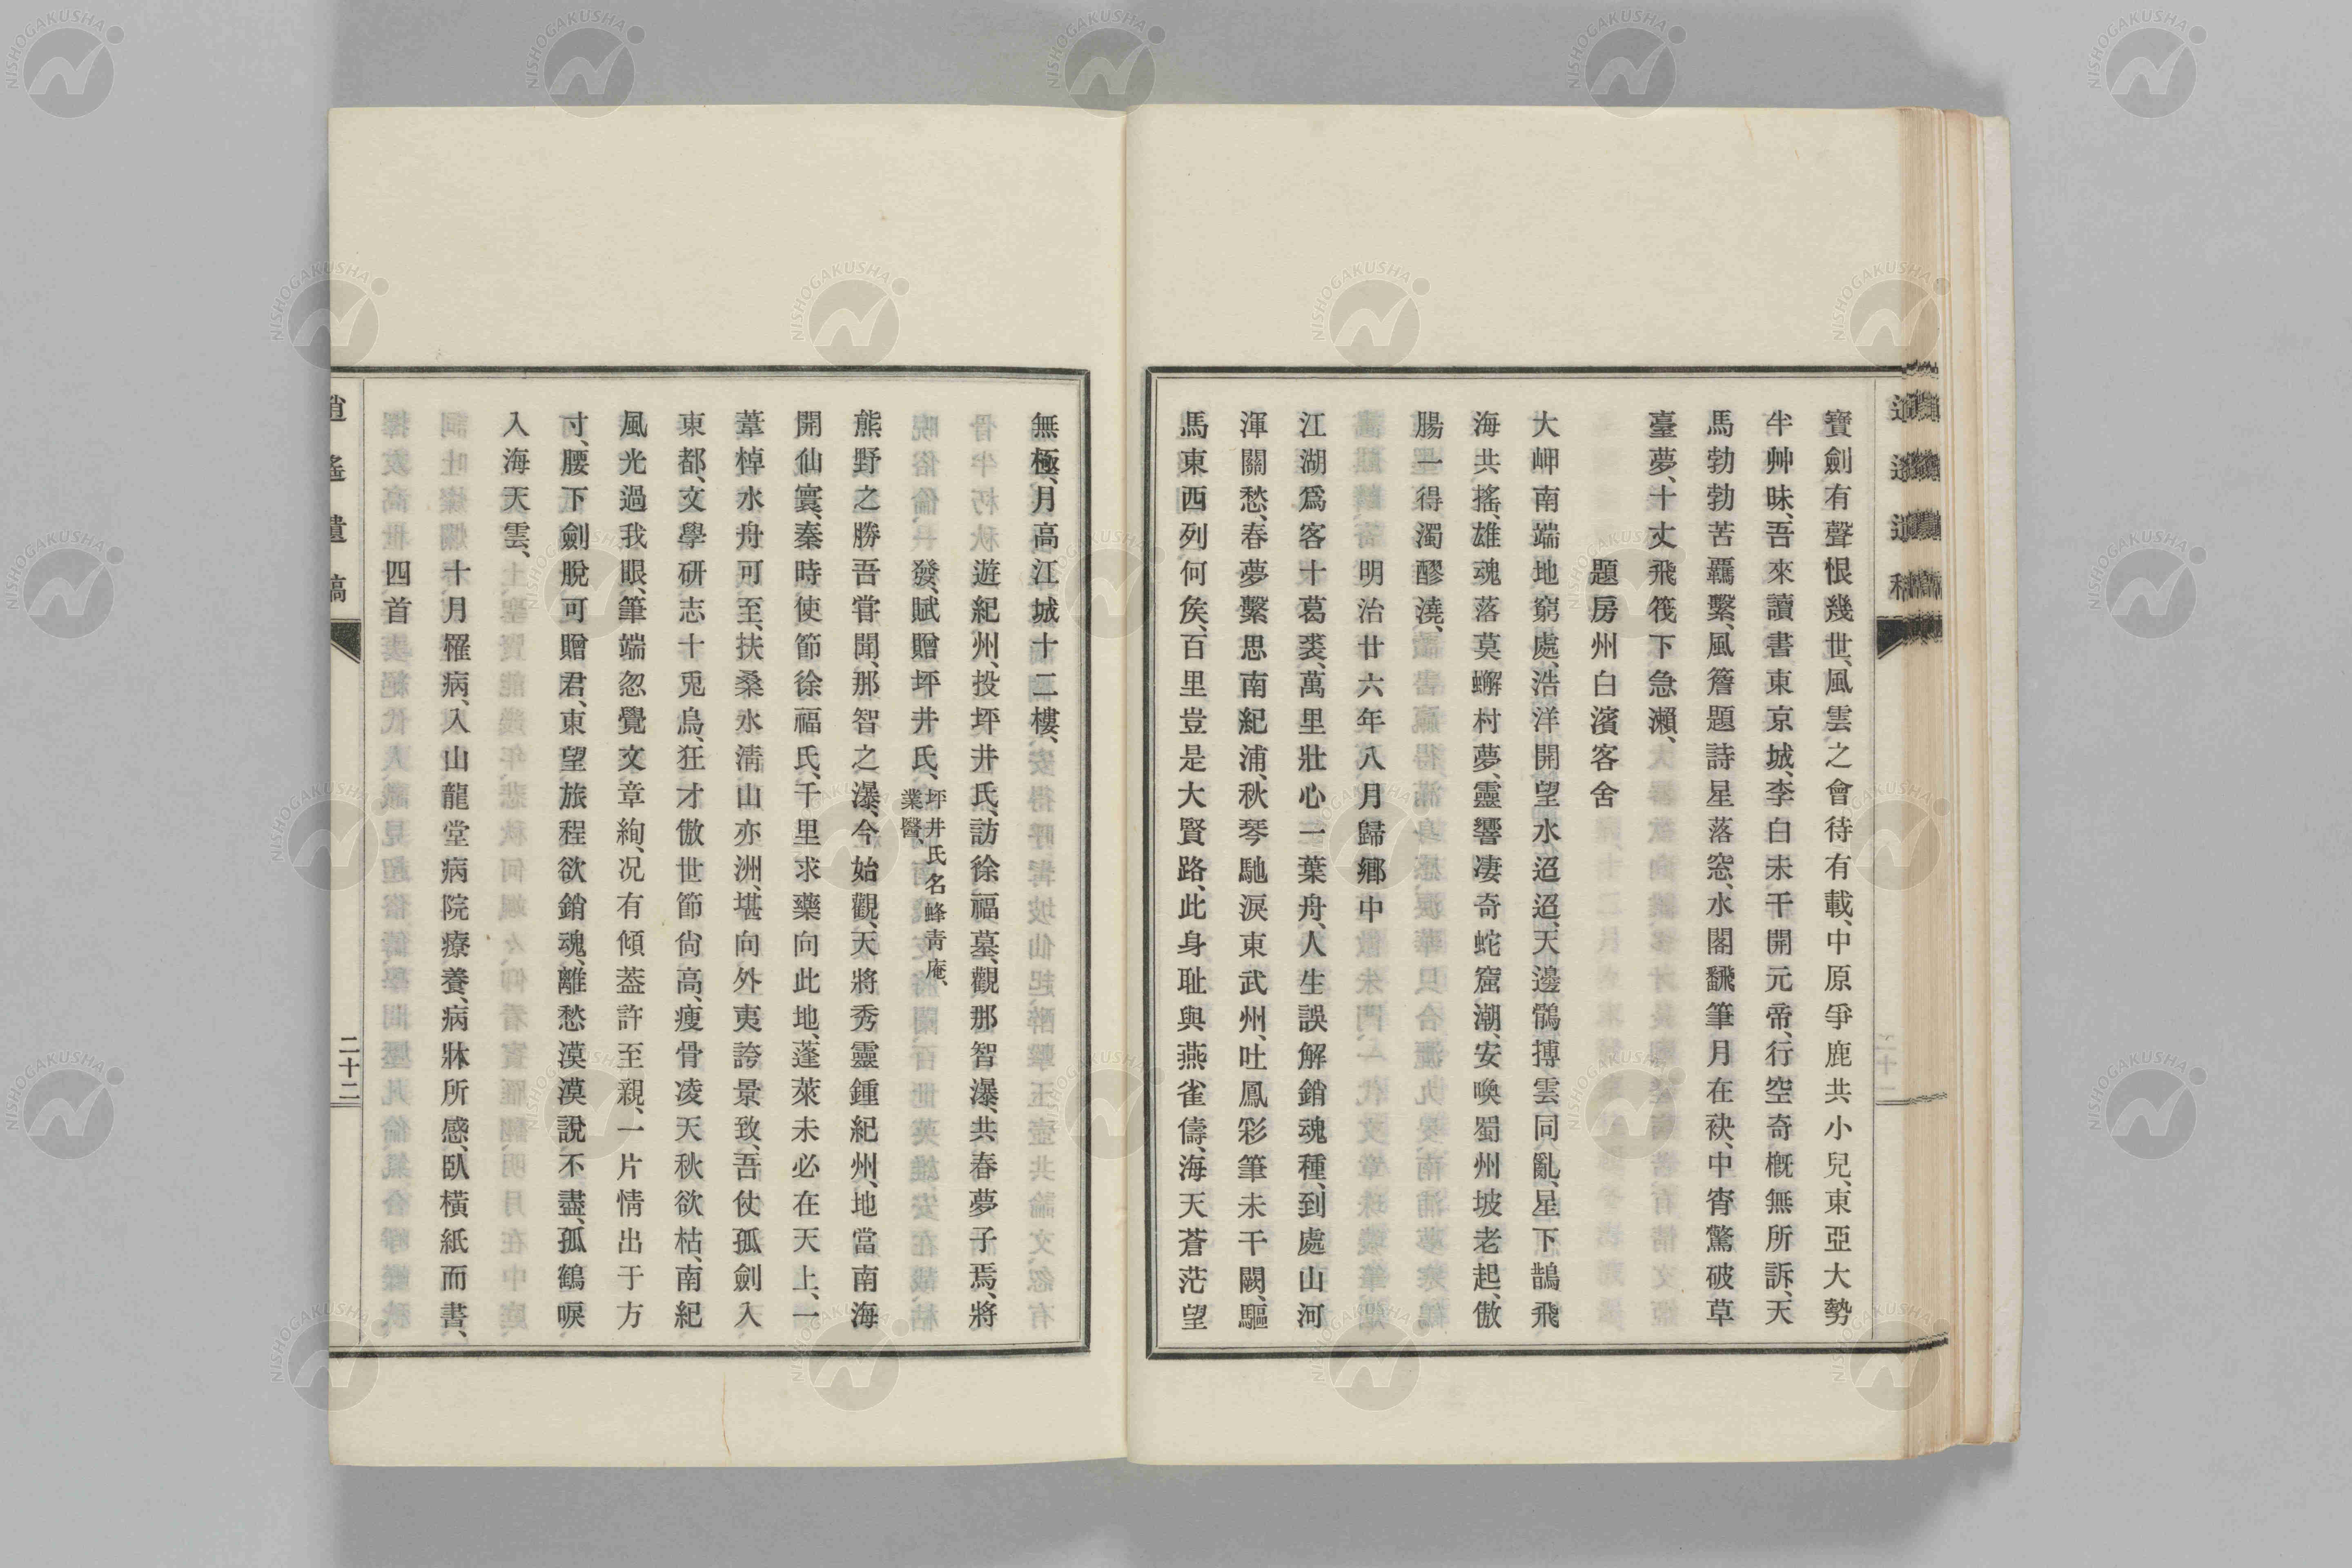 寶劍有聲恨幾世、風雲之會待有載、中原爭鹿共小兒、東亞大勢
半艸昧、吾來讀書東京城、李白未干開元帝、行空奇槪無所訴、天
馬勃勃苦羈繫、風簷題詩星落窓、水閣飜筆月在袂、中宵驚破草
臺夢、十丈飛筏下急瀨、
題房州白濱客舍
大岬南端地窮處、浩洋開望水迢迢、天邊鶻搏雲同亂、星下鵲飛
海共搖、雄魂落莫蠏村夢、靈響凄奇蛇窟潮、安喚蜀州坡老起、傲
腸一得濁醪澆、
明治廿六年八月歸鄕中
江湖爲客十葛裘、萬里壯心一葉舟、人生誤解銷魂種、到處山河
渾關愁、春夢繫思南紀浦、秋琴馳淚東武州、吐鳳彩筆未干闕、驅
馬東西列何矦、百里豈是大賢路、此身耻與燕雀儔、海天蒼茫望
無極、月高江城十二樓、
遊紀州、投坪井氏、訪徐福墓、觀那智瀑、共春夢子焉、將
發、賦贈坪井氏、坪井氏名蜂靑庵、業醫、
熊野之勝吾甞聞、那智之瀑今始觀、天將秀靈鍾紀州、地當南海
開仙寰、秦時使節徐福氏、千里求藥向此地、蓬萊未必在天上、一
葦棹水舟可至、扶桑水淸山亦洲、堪向外夷誇景致、吾仗孤劍入
東都、文學研志十兎烏、狂才傲世節尙高、瘦骨凌天秋欲枯、南紀
風光過我眼、筆端忽覺文章絢、况有傾葢許至親、一片情出于方
寸、腰下劍脫可贈君、東望旅程欲銷魂、離愁漠漠說不盡、孤鶴唳
入海天雲、
十月罹病、入山龍堂病院療養、病牀所感、臥橫紙而書、
四首
逍遙遺稿
二十二